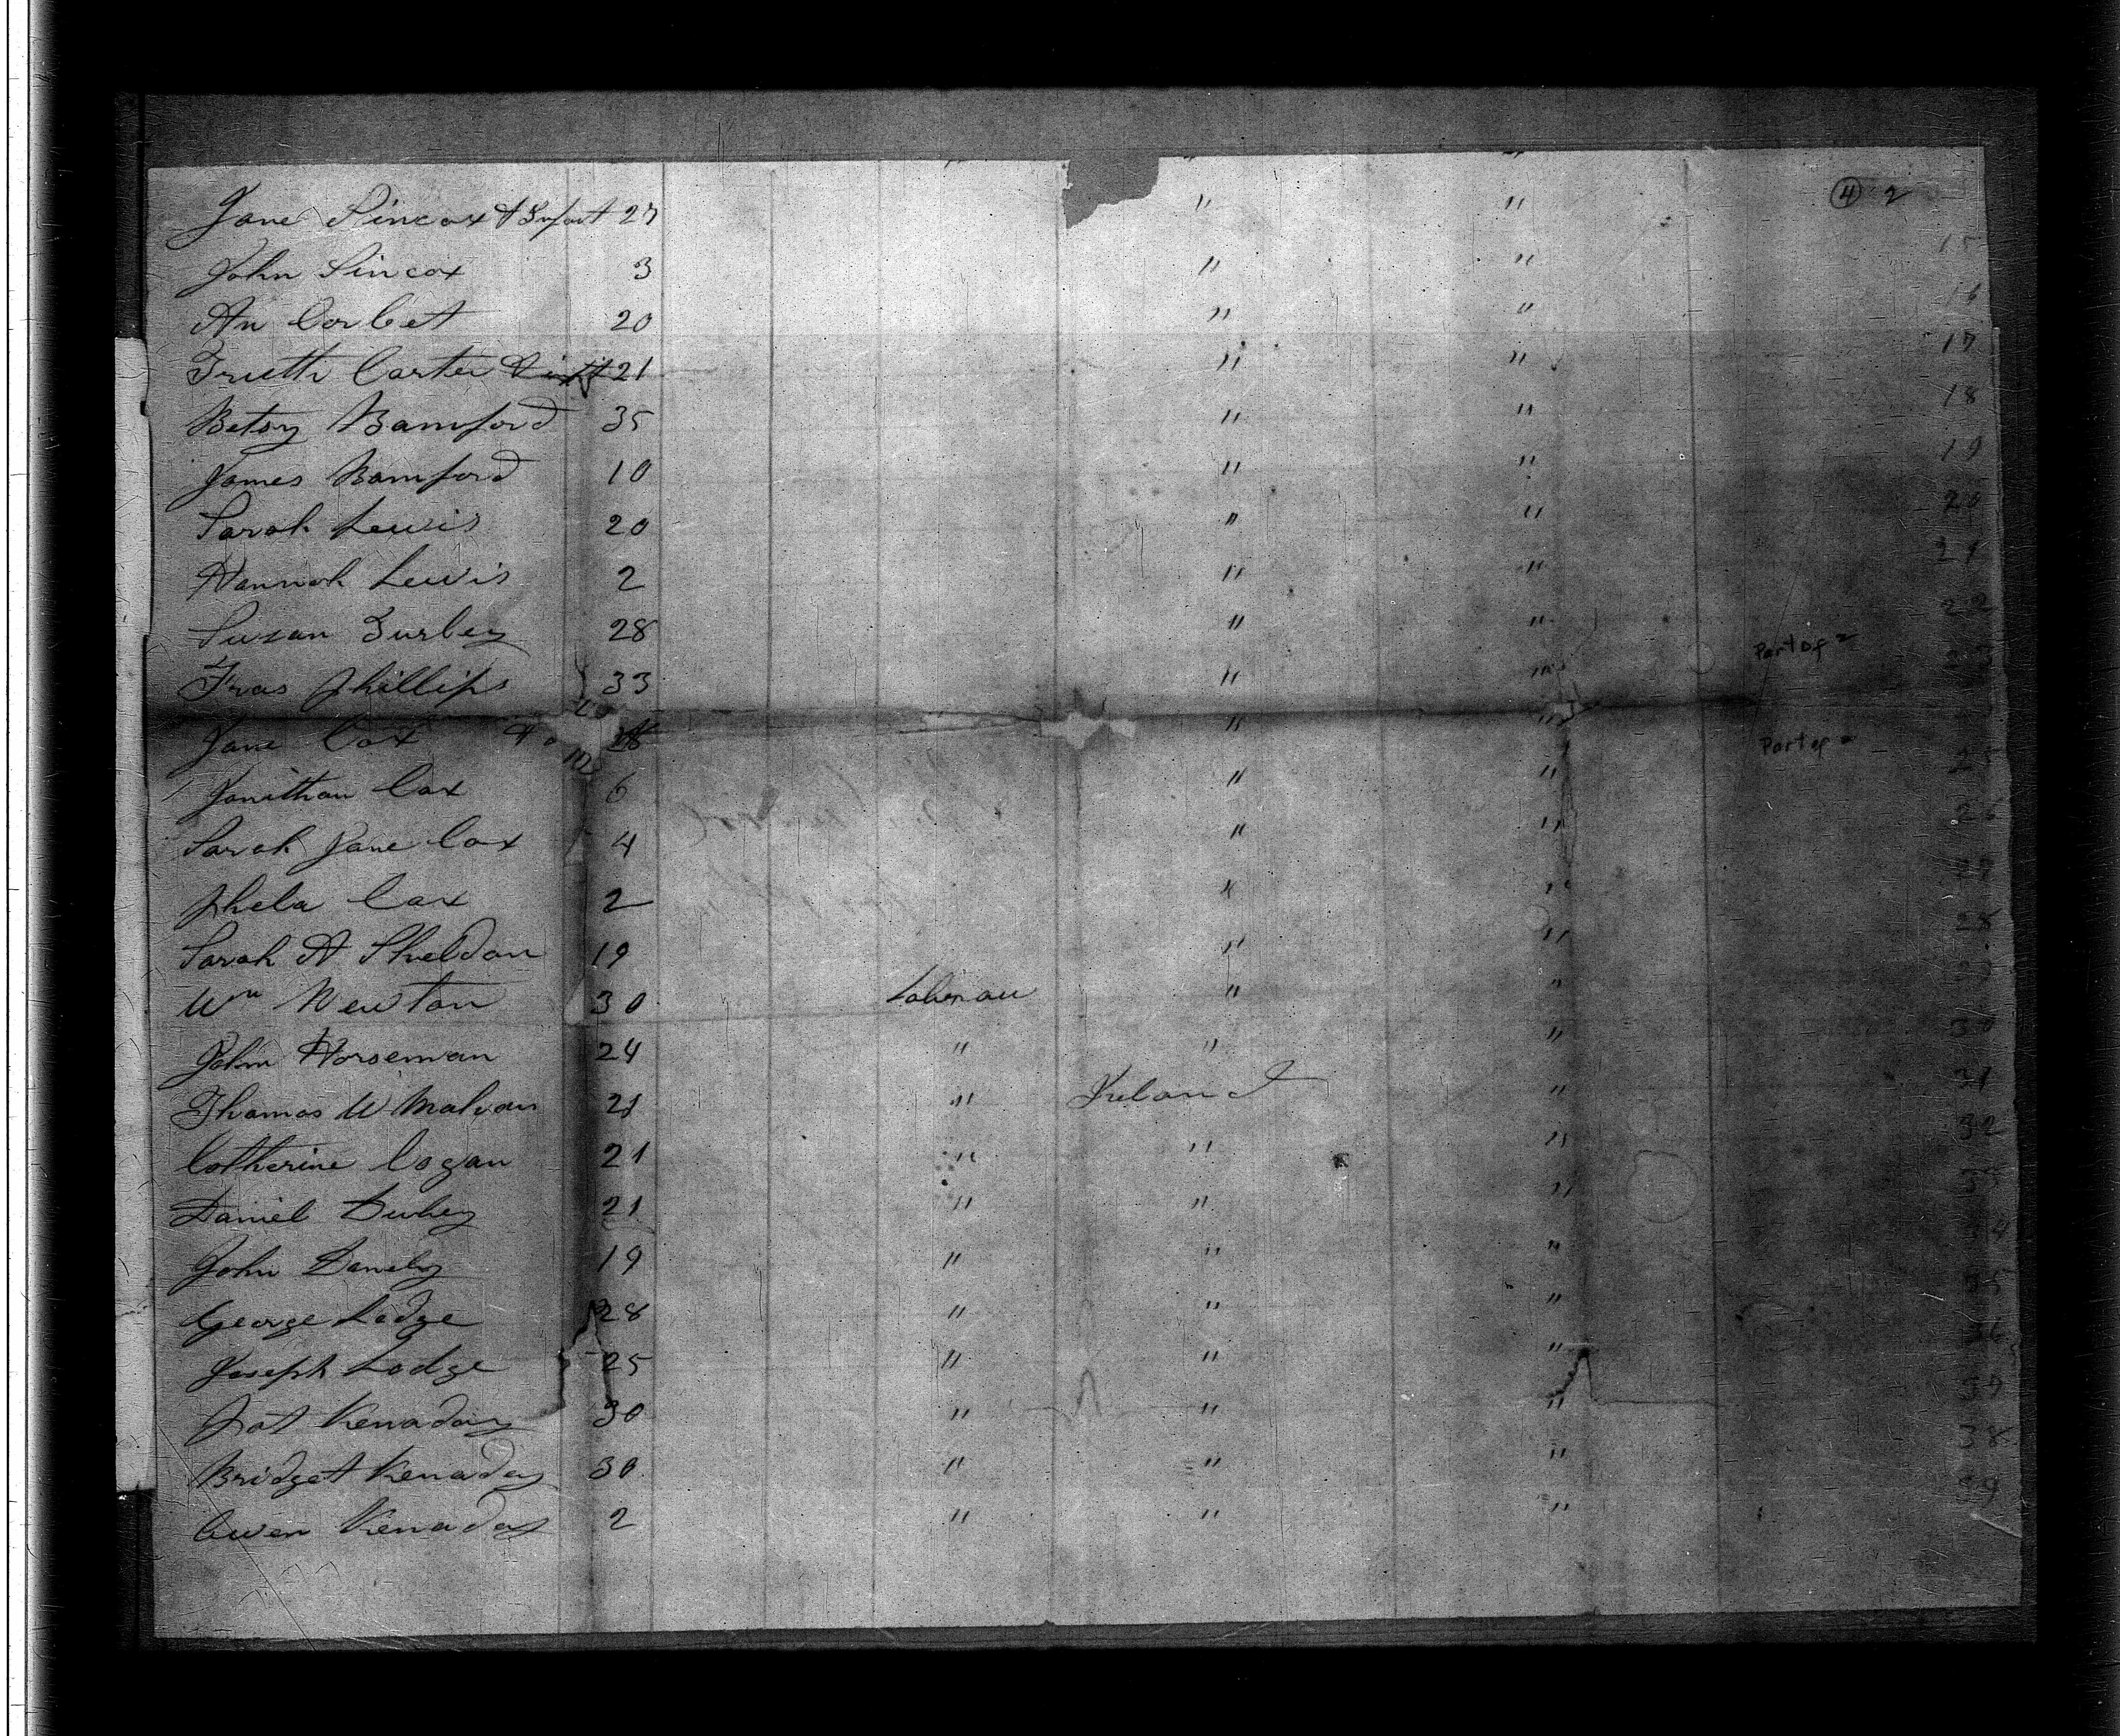 ④ 2
Jane Sincox & Infant 27 " "
John Sincox 3 " " 15
An Corbet 20 " " 16
Carter 21 " " 17
Betsy Bamford 35 " " 18
James Bamford 10 " " 19
Sarah Lewis 20 " " 20
Hannah Lewis 2 " " 21
Susan Turley 28 " " 22
Part of 2
Fras Phillips 33 " "
Jane Cox " "
Part of 2
Jonithan Cox 6 " " 25
Sarah Jane Cox 4 " " 26
Phela Cox 2 " " 27
Sarah A Sheldon 19 " " 28
Wm Newton 30 " "
John Horseman 24 " " " 30
Thomas W Malvan 21 " Ireland " 31
Catherine Cogan 21 " " " 32
Daniel 21 " " "
John 19 " " " 34
George Lodge 28 " " " 35
Joseph Lodge 25 " " " 36
Pat Kenaday 30 " " " 37
Bridget Kenaday 30 " " " 38
Owen Kenaday 2 " " " 39